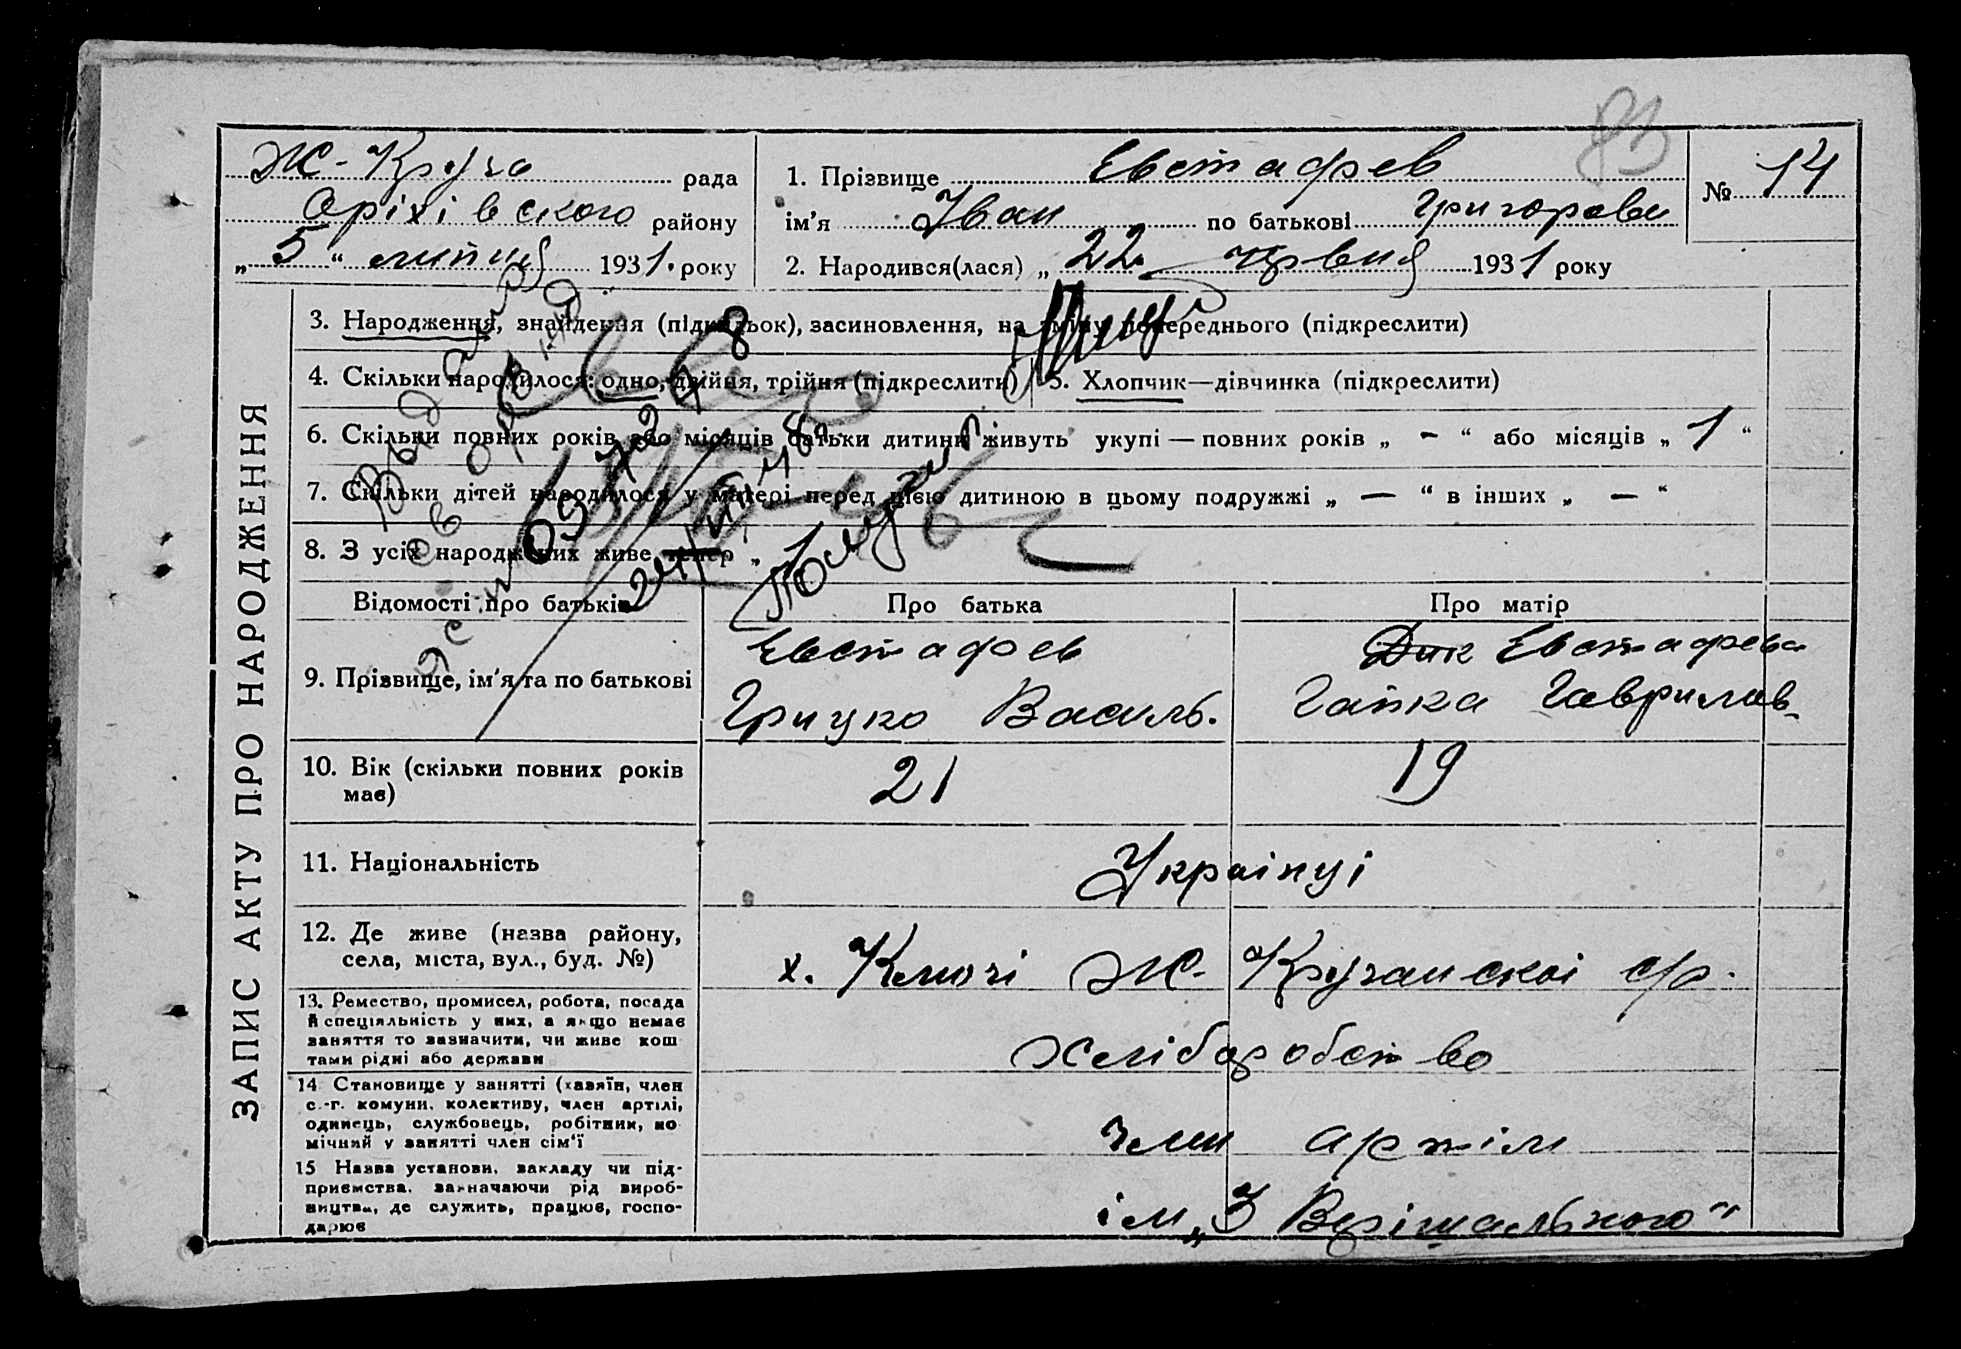 83
Ж-Круча рада
Оріхівського району
„ 5 “ липня 1931. року
1. Прізвище Евстафев
ім’я Іван по батькові Григоров.
2. Народився(лася) „ 22 червня 1931 року
№ 14
ЗАПИС АКТУ ПРО НАРОДЖЕННЯ
3. Народження, знайдення (підкидьок), засиновлення, на зміну попереднього (підкреслити)
4. Скільки народилося: одно, двійня, трійня (підкреслити)
5. Хлопчик—дівчинка (підкреслити)
6. Скільки повних років або місяців батьки дитини живуть укупі — повних років „ - “ або місяців „ 1 “
7. Скільки дітей народилося у матері перед цією дитиною в цьому подружжі „ — “ в інших „ — “
8. З усіх народжених живе тепер „
Выдано
Получил
Відомості про батьків
Про батька
Про матір
9. Прізвище, ім’я та по батькові
Евстафев
Грицко Василь.
Дик Евстафева
Гапка Гаврилов.
10. Вік (скільки повних років має)
21
19
11. Національність
Українці
12. Де живе (назва району,
села, міста, вул., буд. №)
х. Ключі Ж-Кручанської с/р.
13. Ремество, промисел, робота, посада
й спеціяльність у них, а якщо немає
заняття то зазначити, чи живе кош
тами рідні або держави
хліборобство
14 Становище у занятті (хазяїн, член
с.-г. комуни, колективу, член артілі,
одинець, службовець, робітник, по
мічний у занятті член сім’ї
член артілі
15 Назва установи, закладу чи під-
приємства, зазначаючи рід вироб-
ництва, де служить, працює, госпо-
дарює
ім „3 Верішального“